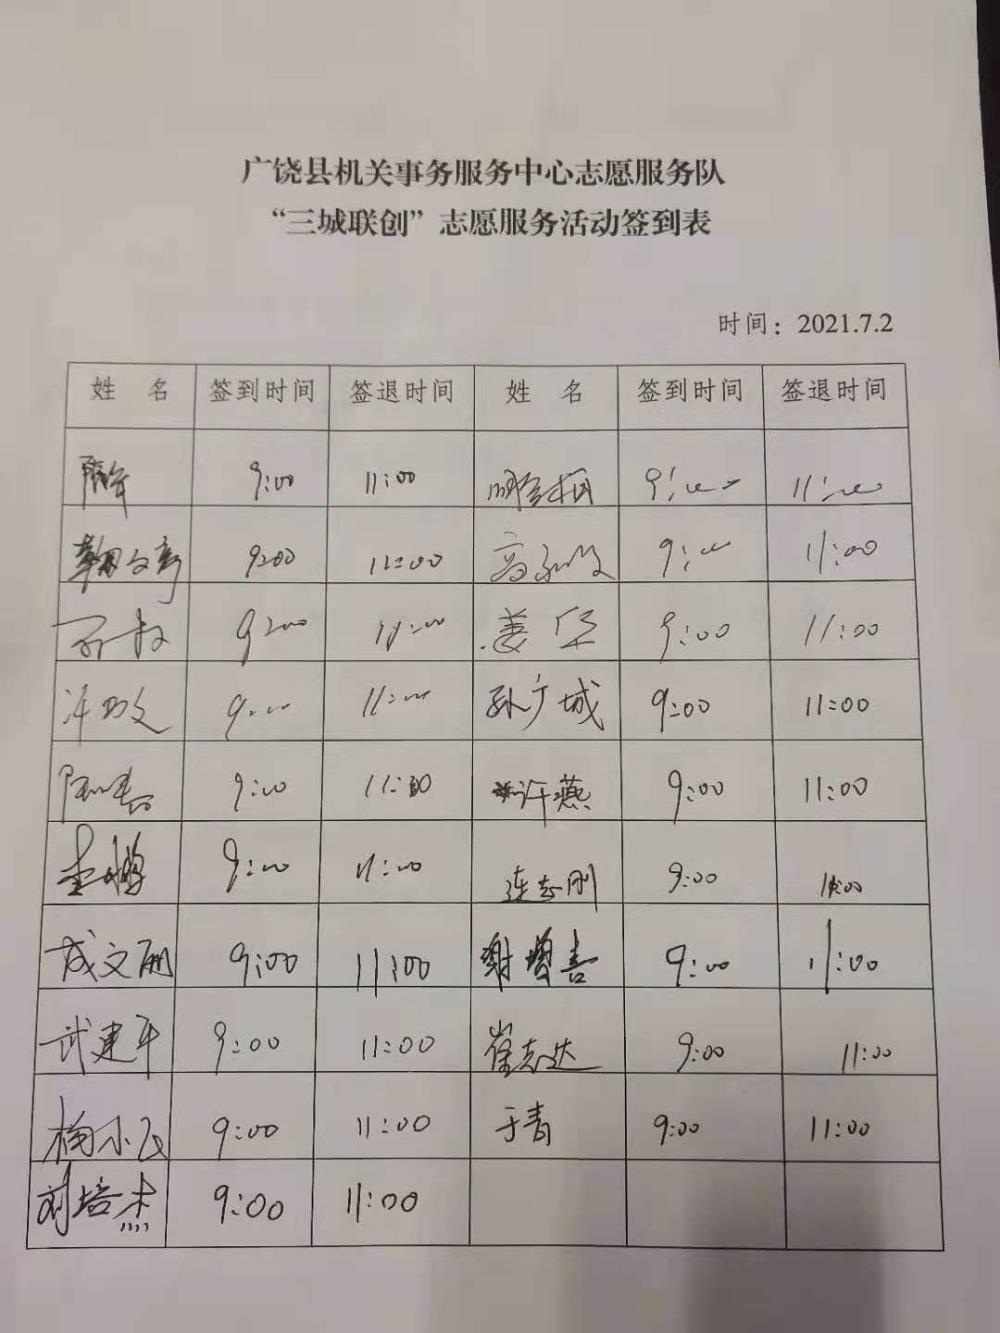 广饶县机关事务服务中心志愿服务队
“三城联创”志愿服务活动签到表
时间：2021.7.2
姓 名 签到时间 签退时间 姓 名 签到时间 签退时间
9:00 11:00 9:00 11:00
9:00 11:00 9:00 11:00
9:00 11:00 姜华 9:00 11:00
9:00 11:00 孙广城 9:00 11:00
9:00 11:00 许燕 9:00 11:00
9:00 11:00 连志刚 9:00 11:00
成文丽 9:00 11:00 谢增喜 9:00 11:00
武建平 9:00 11:00 崔志达 9:00 11:00
梅小飞 9:00 11:00 于青 9:00 11:00
刘培杰 9:00 11:00